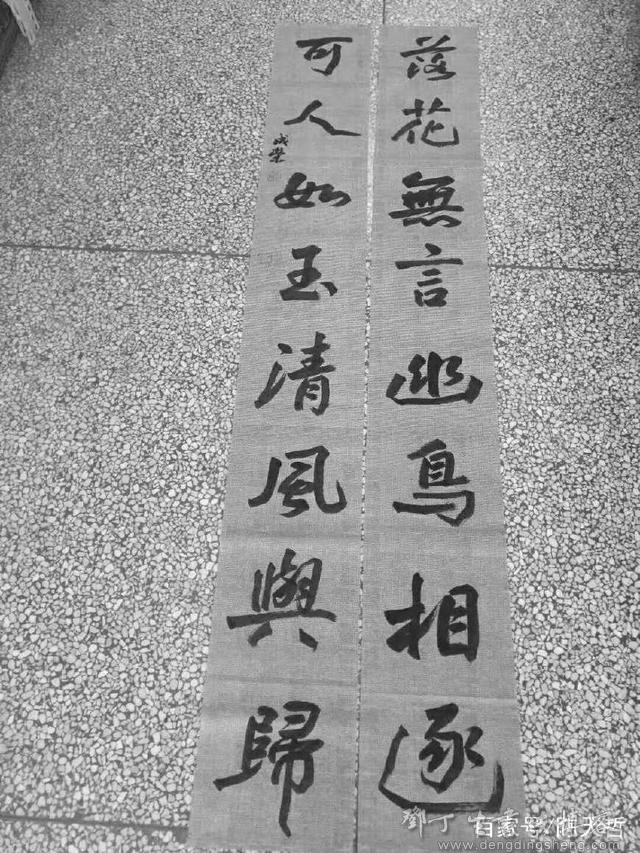 落花無言幽鳥相逐
可人如玉清風與歸
成榮
百家号/
www.dengdingsheng.com